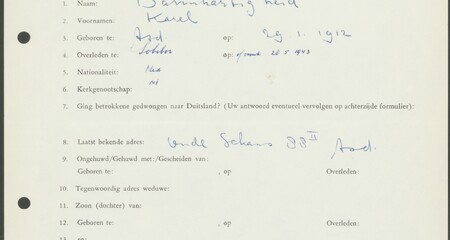 1. Naam: Barmhartigheid
2. Voornamen: Karel
3. Geboren te: Asd op: 29 1. 1912
4. Overleden te: Sobibor op: 28 5 1943
5. Nationaliteit: Ned
6. Kerkgenootschap: NI
7. Ging betrokkene gedwongen naar Duitsland? (Uw antwoord eventueel vervolgen op achterzijde formulier):
8. Laatst bekende adres: Oude Schans 33 II Asd.
9. Ongehuwd/Gehuwd met:/Gescheiden van:
Geboren te: , op Overleden:
10. Tegenwoordig adres weduwe:
11. Zoon (dochter) van:
12. Geboren te: , op Overleden:
13. en